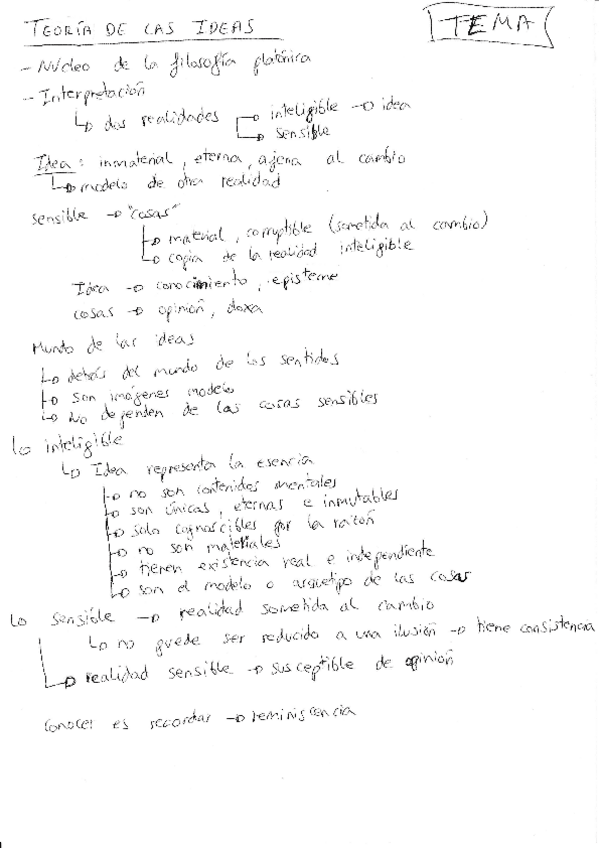 TEORÍA DE LAS IDEAS
TEMA
- Núcleo de la filosofía platónica
- Interpretación
dos realidades
inteligible → idea
sensible
Idea: inmaterial, eterna, ajena al cambio
modelo de otra realidad
sensible → "cosas"
material, corruptible (sometida al cambio)
copia de la realidad inteligible
Idea → conocimiento, episteme
cosas → opinión, doxa
Mundo de las ideas
detrás del mundo de los sentidos
son imágenes modelo
No dependen de las cosas sensibles
lo inteligible
Idea representa la esencia
no son contenidos mentales
son únicas, eternas e inmutables
solo cognoscibles por la razón
no son materiales
tienen existencia real e independiente
son el modelo o arquetipo de las cosas
Lo sensible → realidad sometida al cambio
no puede ser reducido a una ilusión → tiene consistencia
realidad sensible → susceptible de opinión
Conocer es recordar → reminiscencia